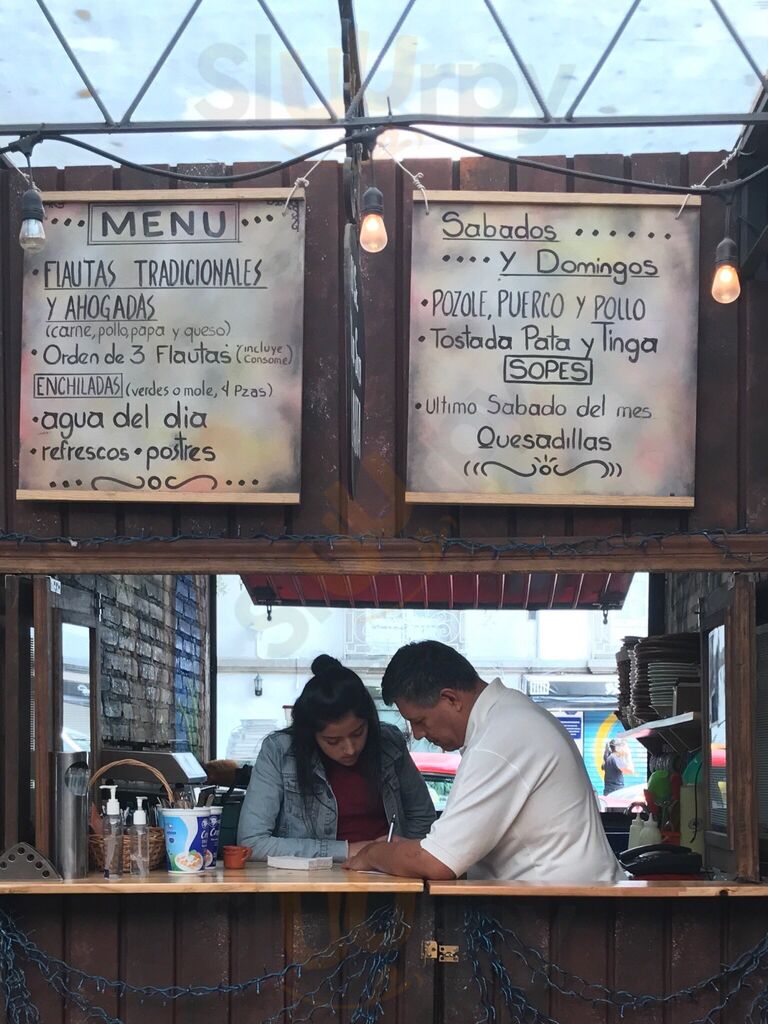 Slurpy
MENU
• FLAUTAS TRADICIONALES
Y AHOGADAS
(carne, pollo, papa y queso)
• Orden de 3 Flautas (incluye consome)
ENCHILADAS (verdes o mole, 4 Pzas)
• agua del dia
• refrescos • postres
Sabados
.... y Domingos
• POZOLE, PUERCO Y POLLO
• Tostada Pata y Tinga
SOPES
• Ultimo Sabado del mes
Quesadillas